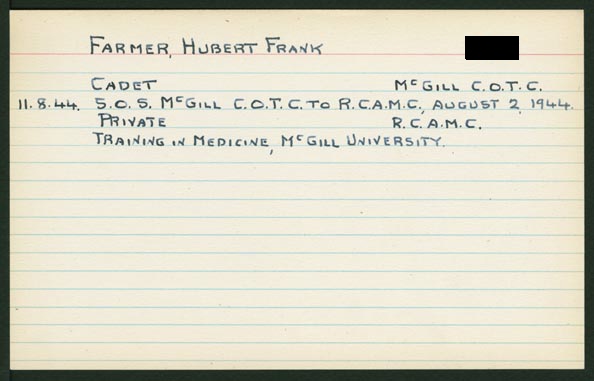 FARMER, HUBERT FRANK
CADET McGILL C.O.T.C.
11.8.44. S.O.S. McGILL C.O.T.C. TO R.C.A.M.C., AUGUST 2, 1944.
PRIVATE R.C.A.M.C.
TRAINING IN MEDICINE, McGILL UNIVERSITY.